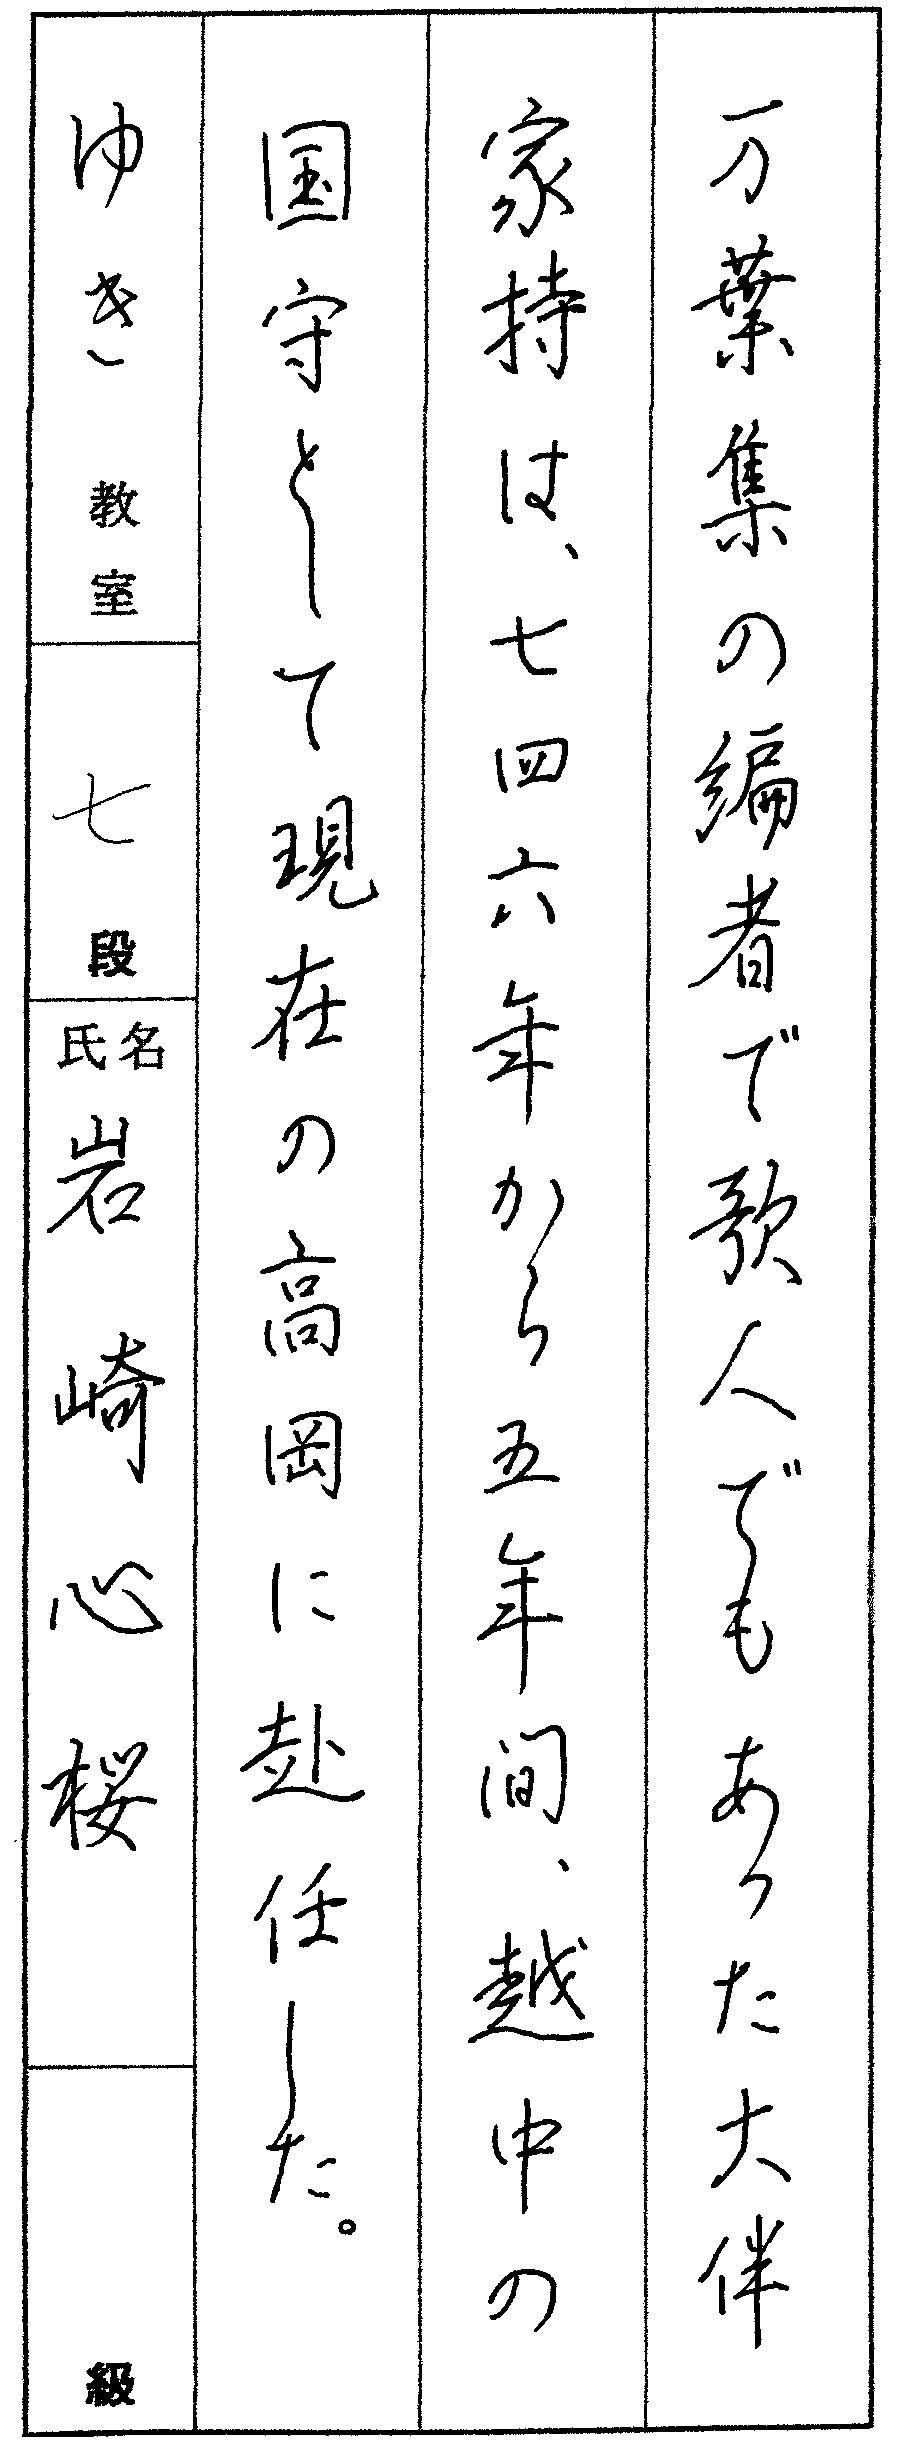 万葉集の編者で歌人でもあった大伴
家持は、七四六年から五年間、越中の
国守として現在の高岡に赴任した。
ゆき教室
七段
氏名
岩崎心桜
級